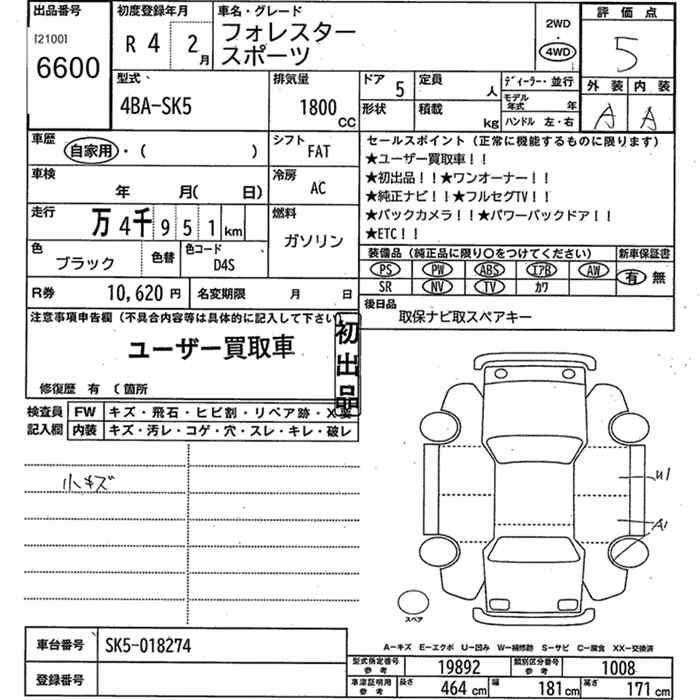 出品番号 初度登録年月 車名・グレード 2WD・4WD 評価点
[2100] 6600 R 4 2月 フォレスター 5
スポーツ
外装 内装
A A
型式 排気量 ドア 5 定員 人 ディーラー・並行
4BA-SK5 1800cc 形状 積載 kg モデル年式 年
ハンドル 左・右
車歴 自家用・( ) シフト FAT セールスポイント (正常に機能するものに限ります)
★ユーザー買取車!!
車検 年 月( 日) 冷房 AC ★初出品!!★ワンオーナー!!
★純正ナビ!!★フルセグTV!!
走行 万4千951km 燃料 ガソリン ★バックカメラ!!★パワーバックドア!!
★ETC!!
色 ブラック 色替 色コード D4S 装備品 (純正品に限り〇をつけてください) 新車保証書
PS PW ABS エアB AW 有 無
R券 10,620円 名変期限 月 日 SR NV TV カワ
後日品
注意事項申告欄 (不具合内容等は具体的に記入して下さい) 取保ナビ取スペアキー
ユーザー買取車 初出品
修復歴 有 〔箇所
検査員 FW キズ・飛石・ヒビ割・リペア跡・X要
記入欄 内装 キズ・汚レ・コゲ・穴・スレ・キレ・破レ
小キズ
U1
A1
スペア
車台番号 SK5-018274
A－キズ E－エクボ U－凹み W－補修跡 S－サビ C－腐食 XX－交換済
登録番号 型式指定番号参考 19892 類別区分番号参考 1008
車庫証明用参考 長さ 464cm 幅 181cm 高さ 171cm